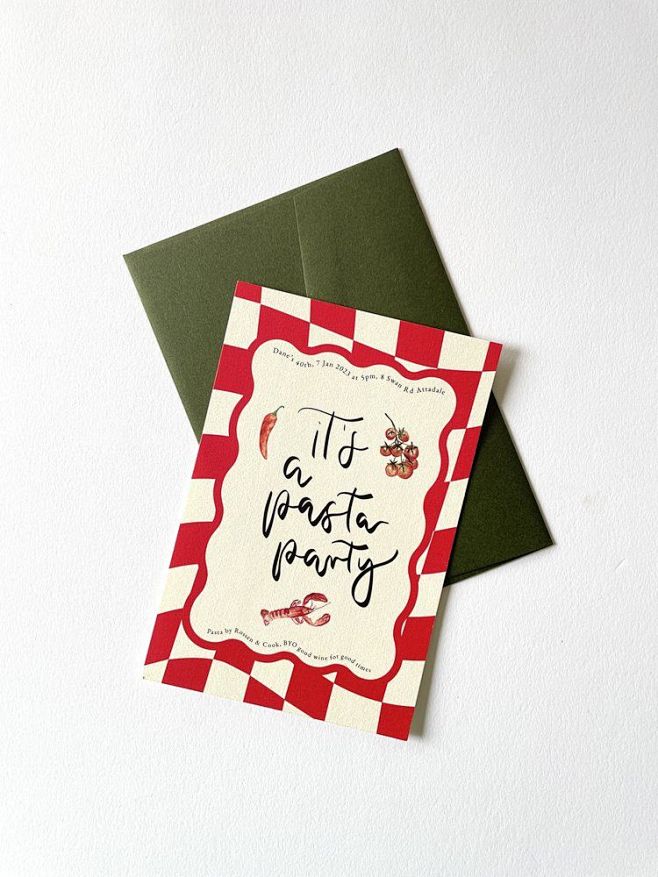 Dane's 40th, 7 Jan 2023 at 5pm, 8 Swan Rd Attadale
it's
a
pasta
party
Pasta by Rossen & Cook, BYO good wine for good times